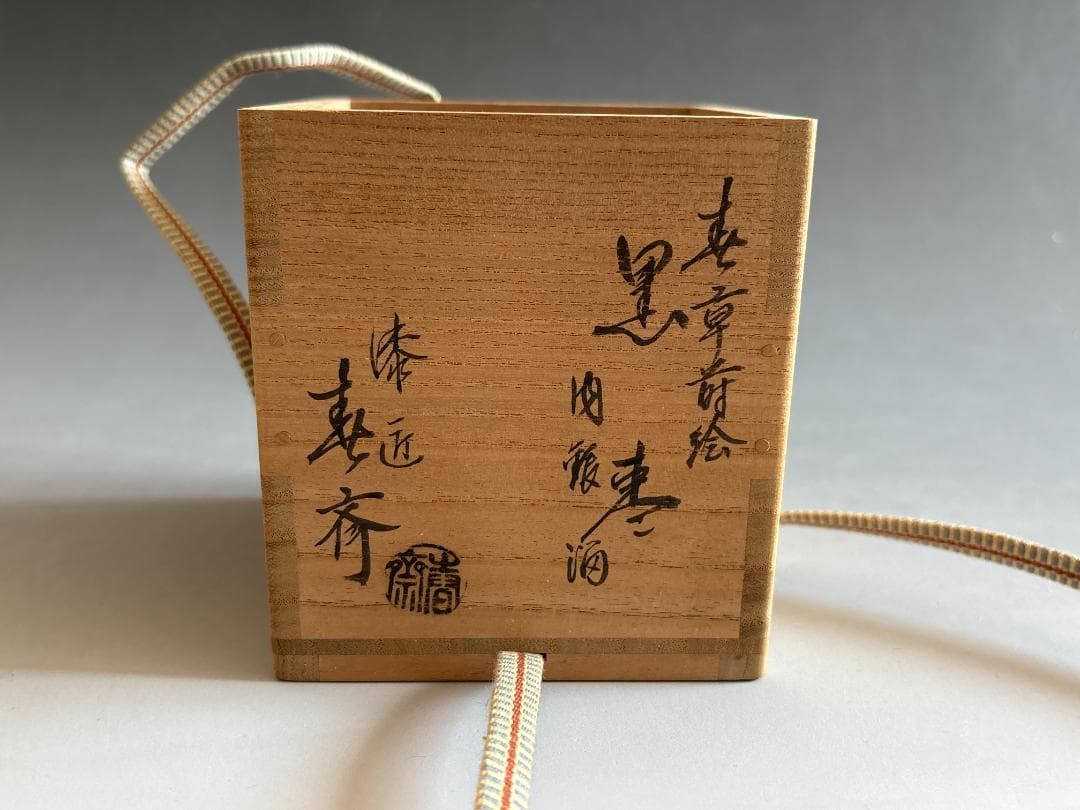 春草蒔絵
黒棗
内銀溜
漆匠
春斎
春斎